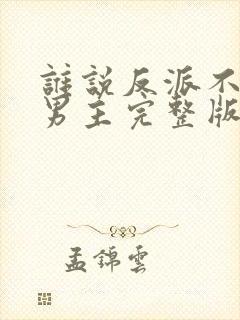 誰說反派不
男主完整版
孟錦雲